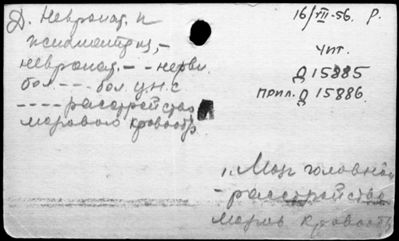 Д. Невропат. и
психиатрия, -
невропат. - - нервн.
бол. --- бол. ц.н.с
---- расстройства
мозгового кровообр.
16/VII-56. Р.
Чит.
Д 15885
Прил. Д 15886.
1. Мозг головной
- расстройства
мозгов. кровообр